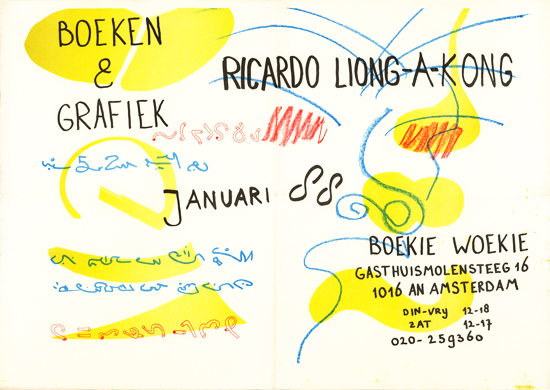 BOEKEN
&
GRAFIEK
RICARDO LIONG-A-KONG
JANUARI 88
BOEKIE WOEKIE
GASTHUISMOLENSTEEG 16
1016 AN AMSTERDAM
DIN-VRY 12-18
ZAT 12-17
020-259360